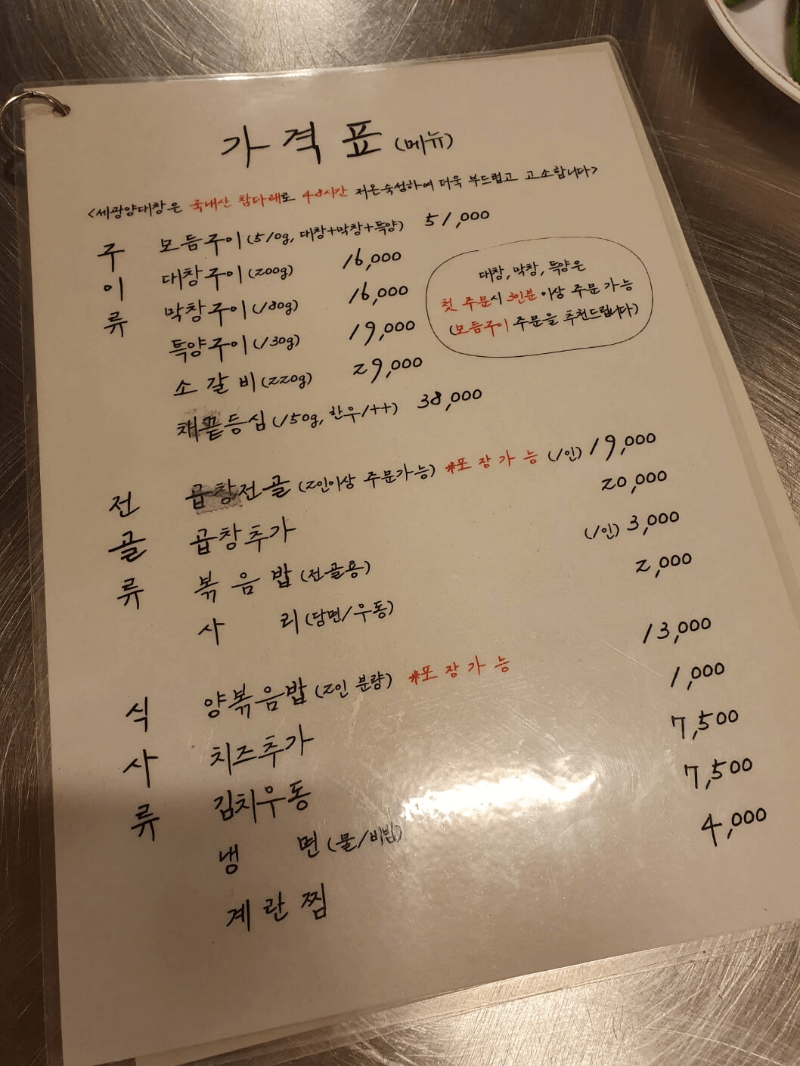 가격표 (메뉴)
<세광양대창은 국내산 참다래로 48시간 저온숙성하여 더욱 부드럽고 고소합니다>
구이류
모듬구이 (510g, 대창+막창+특양) 51,000
대창구이 (200g) 16,000
막창구이 (180g) 16,000
특양구이 (130g) 19,000
소갈비 (220g) 29,000
채끝등심 (150g, 한우1++) 38,000
대창, 막창, 특양은
첫 주문시 3인분 이상 주문 가능
(모듬구이 주문을 추천드립니다)
전골류
곱창전골 (2인이상 주문가능) *포장가능 (1인) 19,000
곱창추가 20,000
볶음밥 (전골용) (1인) 3,000
사리 (당면/우동) 2,000
식사류
양볶음밥 (2인 분량) *포장가능 13,000
치즈추가 1,000
김치우동 7,500
냉면 (물/비빔) 7,500
계란찜 4,000